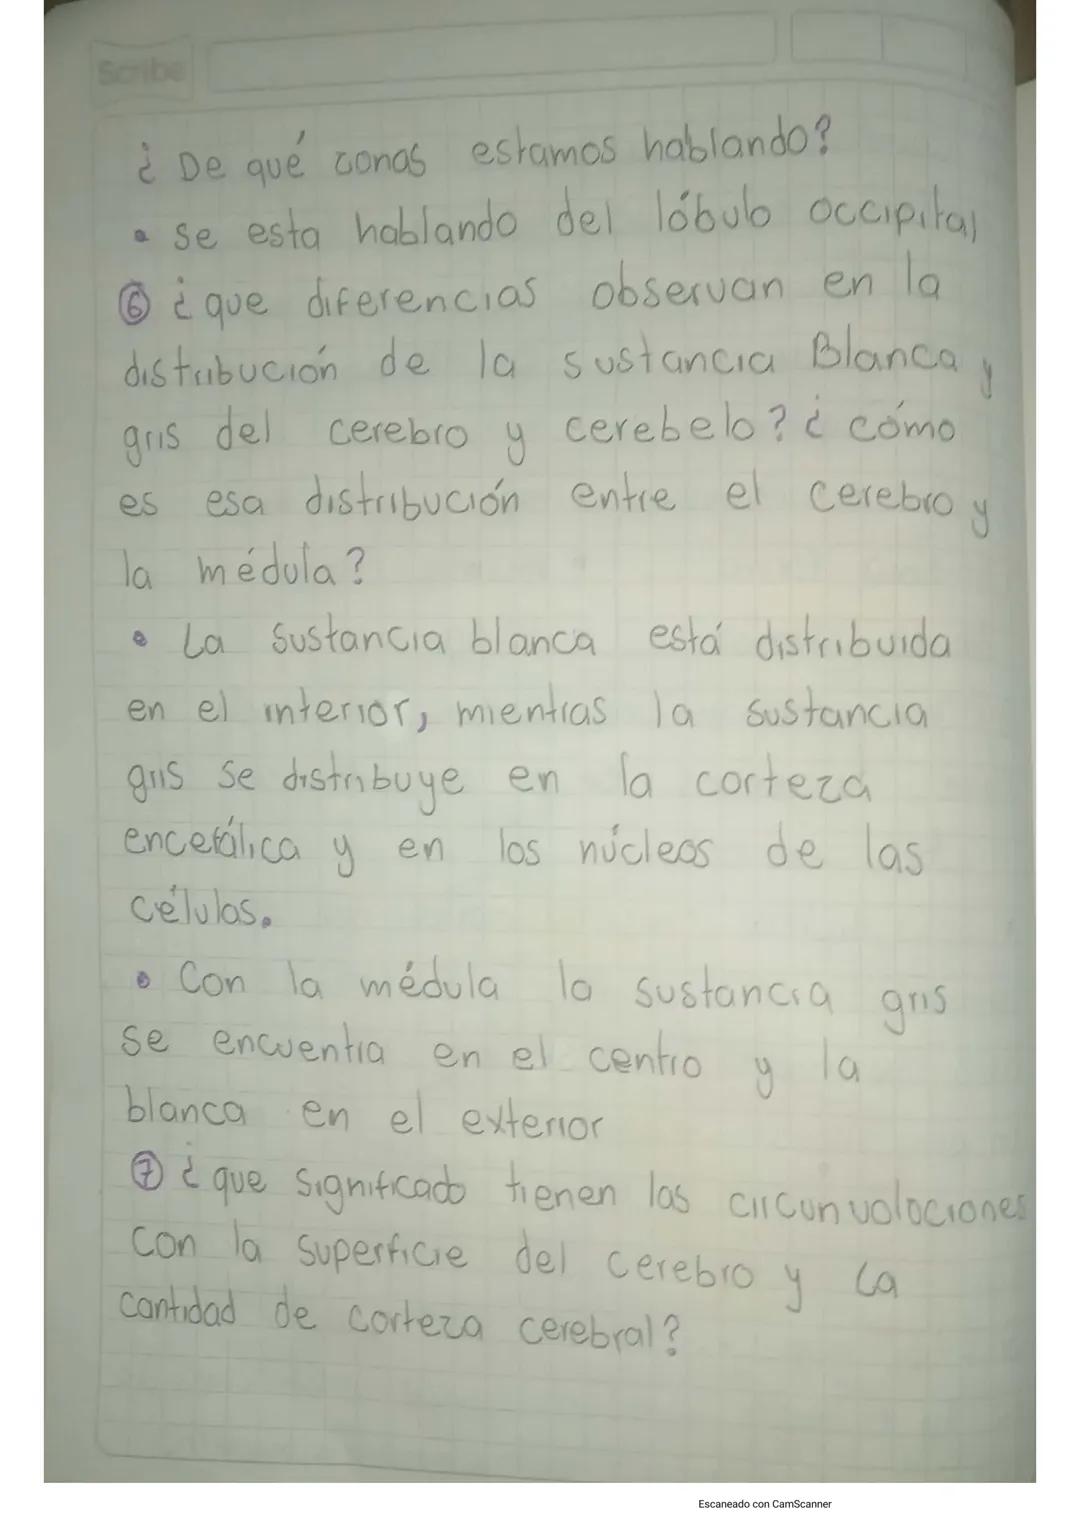 Scribe
¿ De qué zonas estamos hablando?
• se esta hablando del lóbulo occipital
⑥ ¿ que diferencias observan en la
distribución de la sustancia Blanca y
gris del cerebro y cerebelo? ¿ cómo
es esa distribución entre el cerebro y
la médula?
• La sustancia blanca está distribuida
en el interior, mientras la sustancia
gris se distribuye en la corteza
encefálica y en los núcleos de las
células.
• Con la médula la sustancia gris
se encuentra en el centro y la
blanca en el exterior
⑦ ¿ que significado tienen las circunvolociones
con la superficie del cerebro y la
cantidad de corteza cerebral?
Escaneado con CamScanner